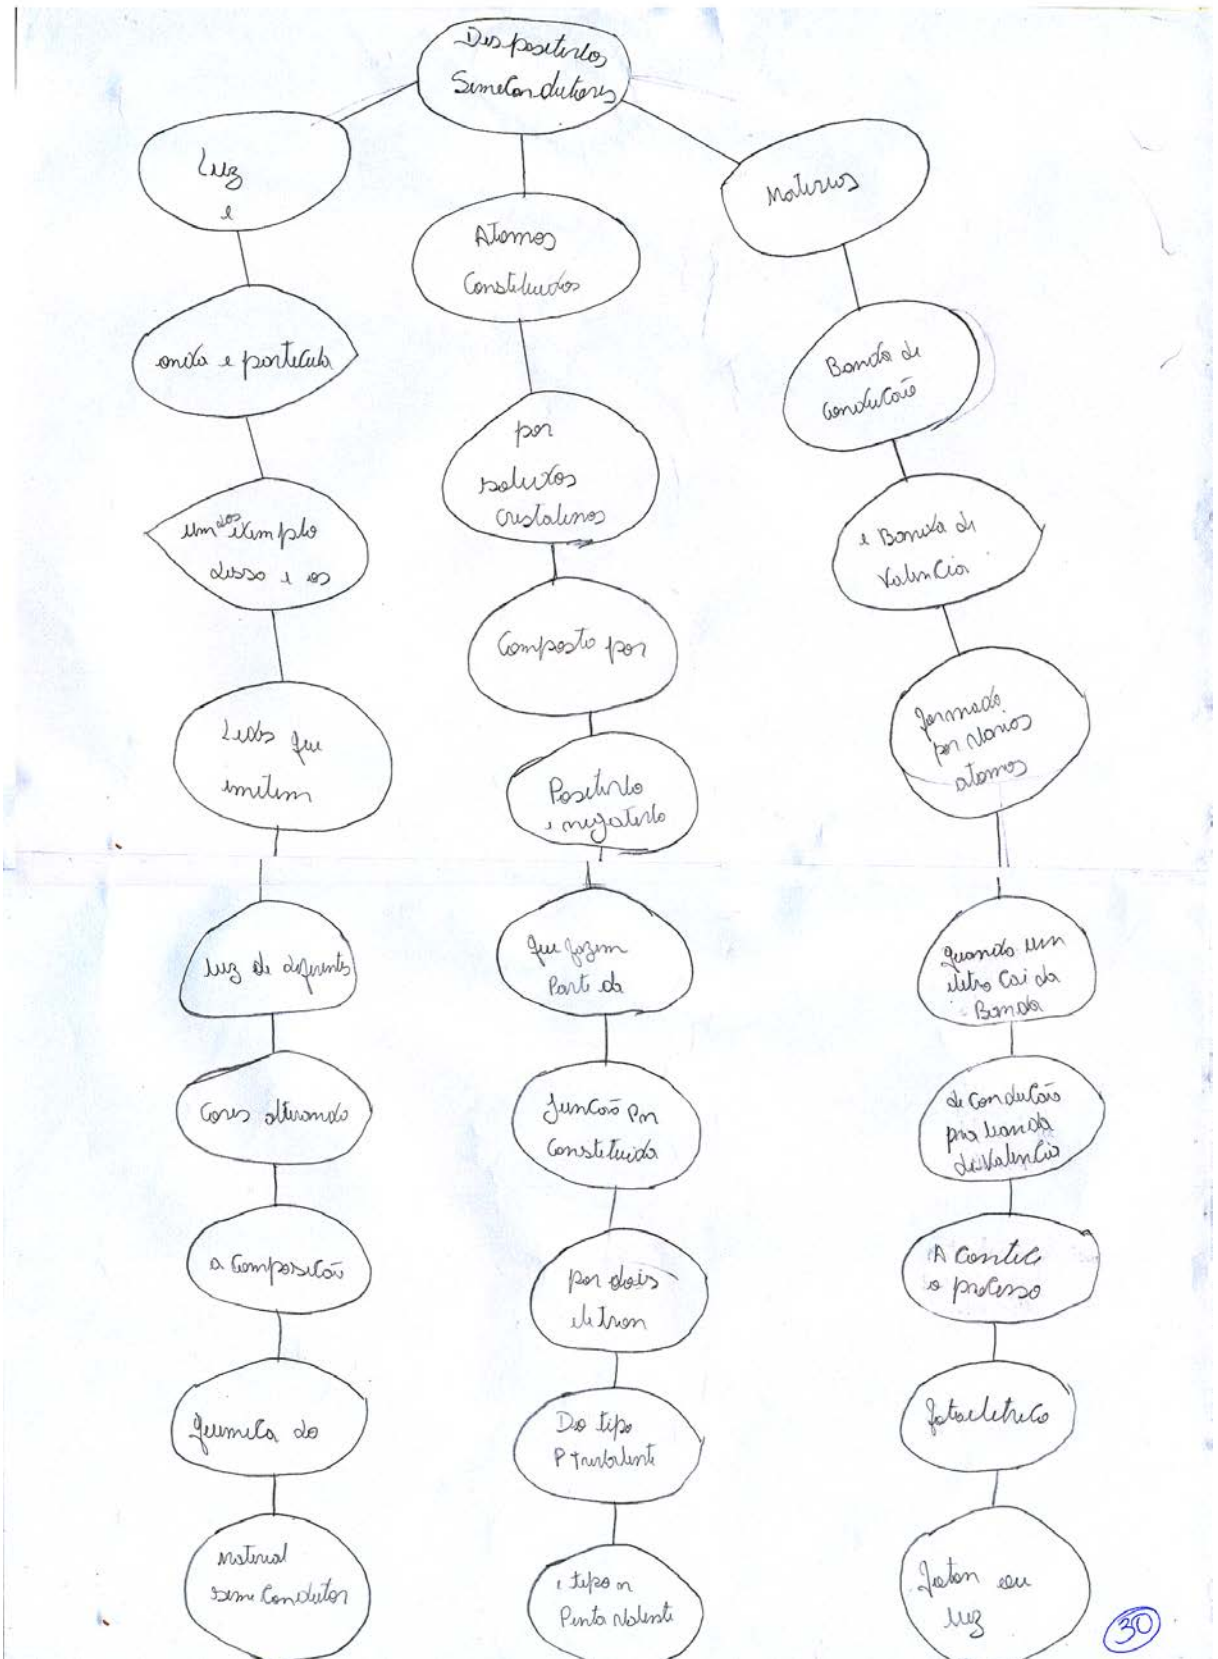 Dispositivos
Semecondutores
Luz
e
onda e particula
um dos exemplo
disso e os
Leds que
emitem
luz de diferentes
Cores alterando
a Composição
quimica do
material
seme Condutor
Atomos
Constituidos
por
solidos
cristalinos
Composto por
Positivo
e negativo
que fazem
Parte da
Junção Pn
Constituida
por dois
eletron
Do tipo
P trivalente
e tipo n
Penta valente
Materias
Banda de
Condução
e Banda de
Valencia
formado
por varios
atomos
quando um
eletro Cai da
Banda
de Condução
pra banda
de Valencia
A Contece
o processo
fotoeletrico
foton ou
luz
30